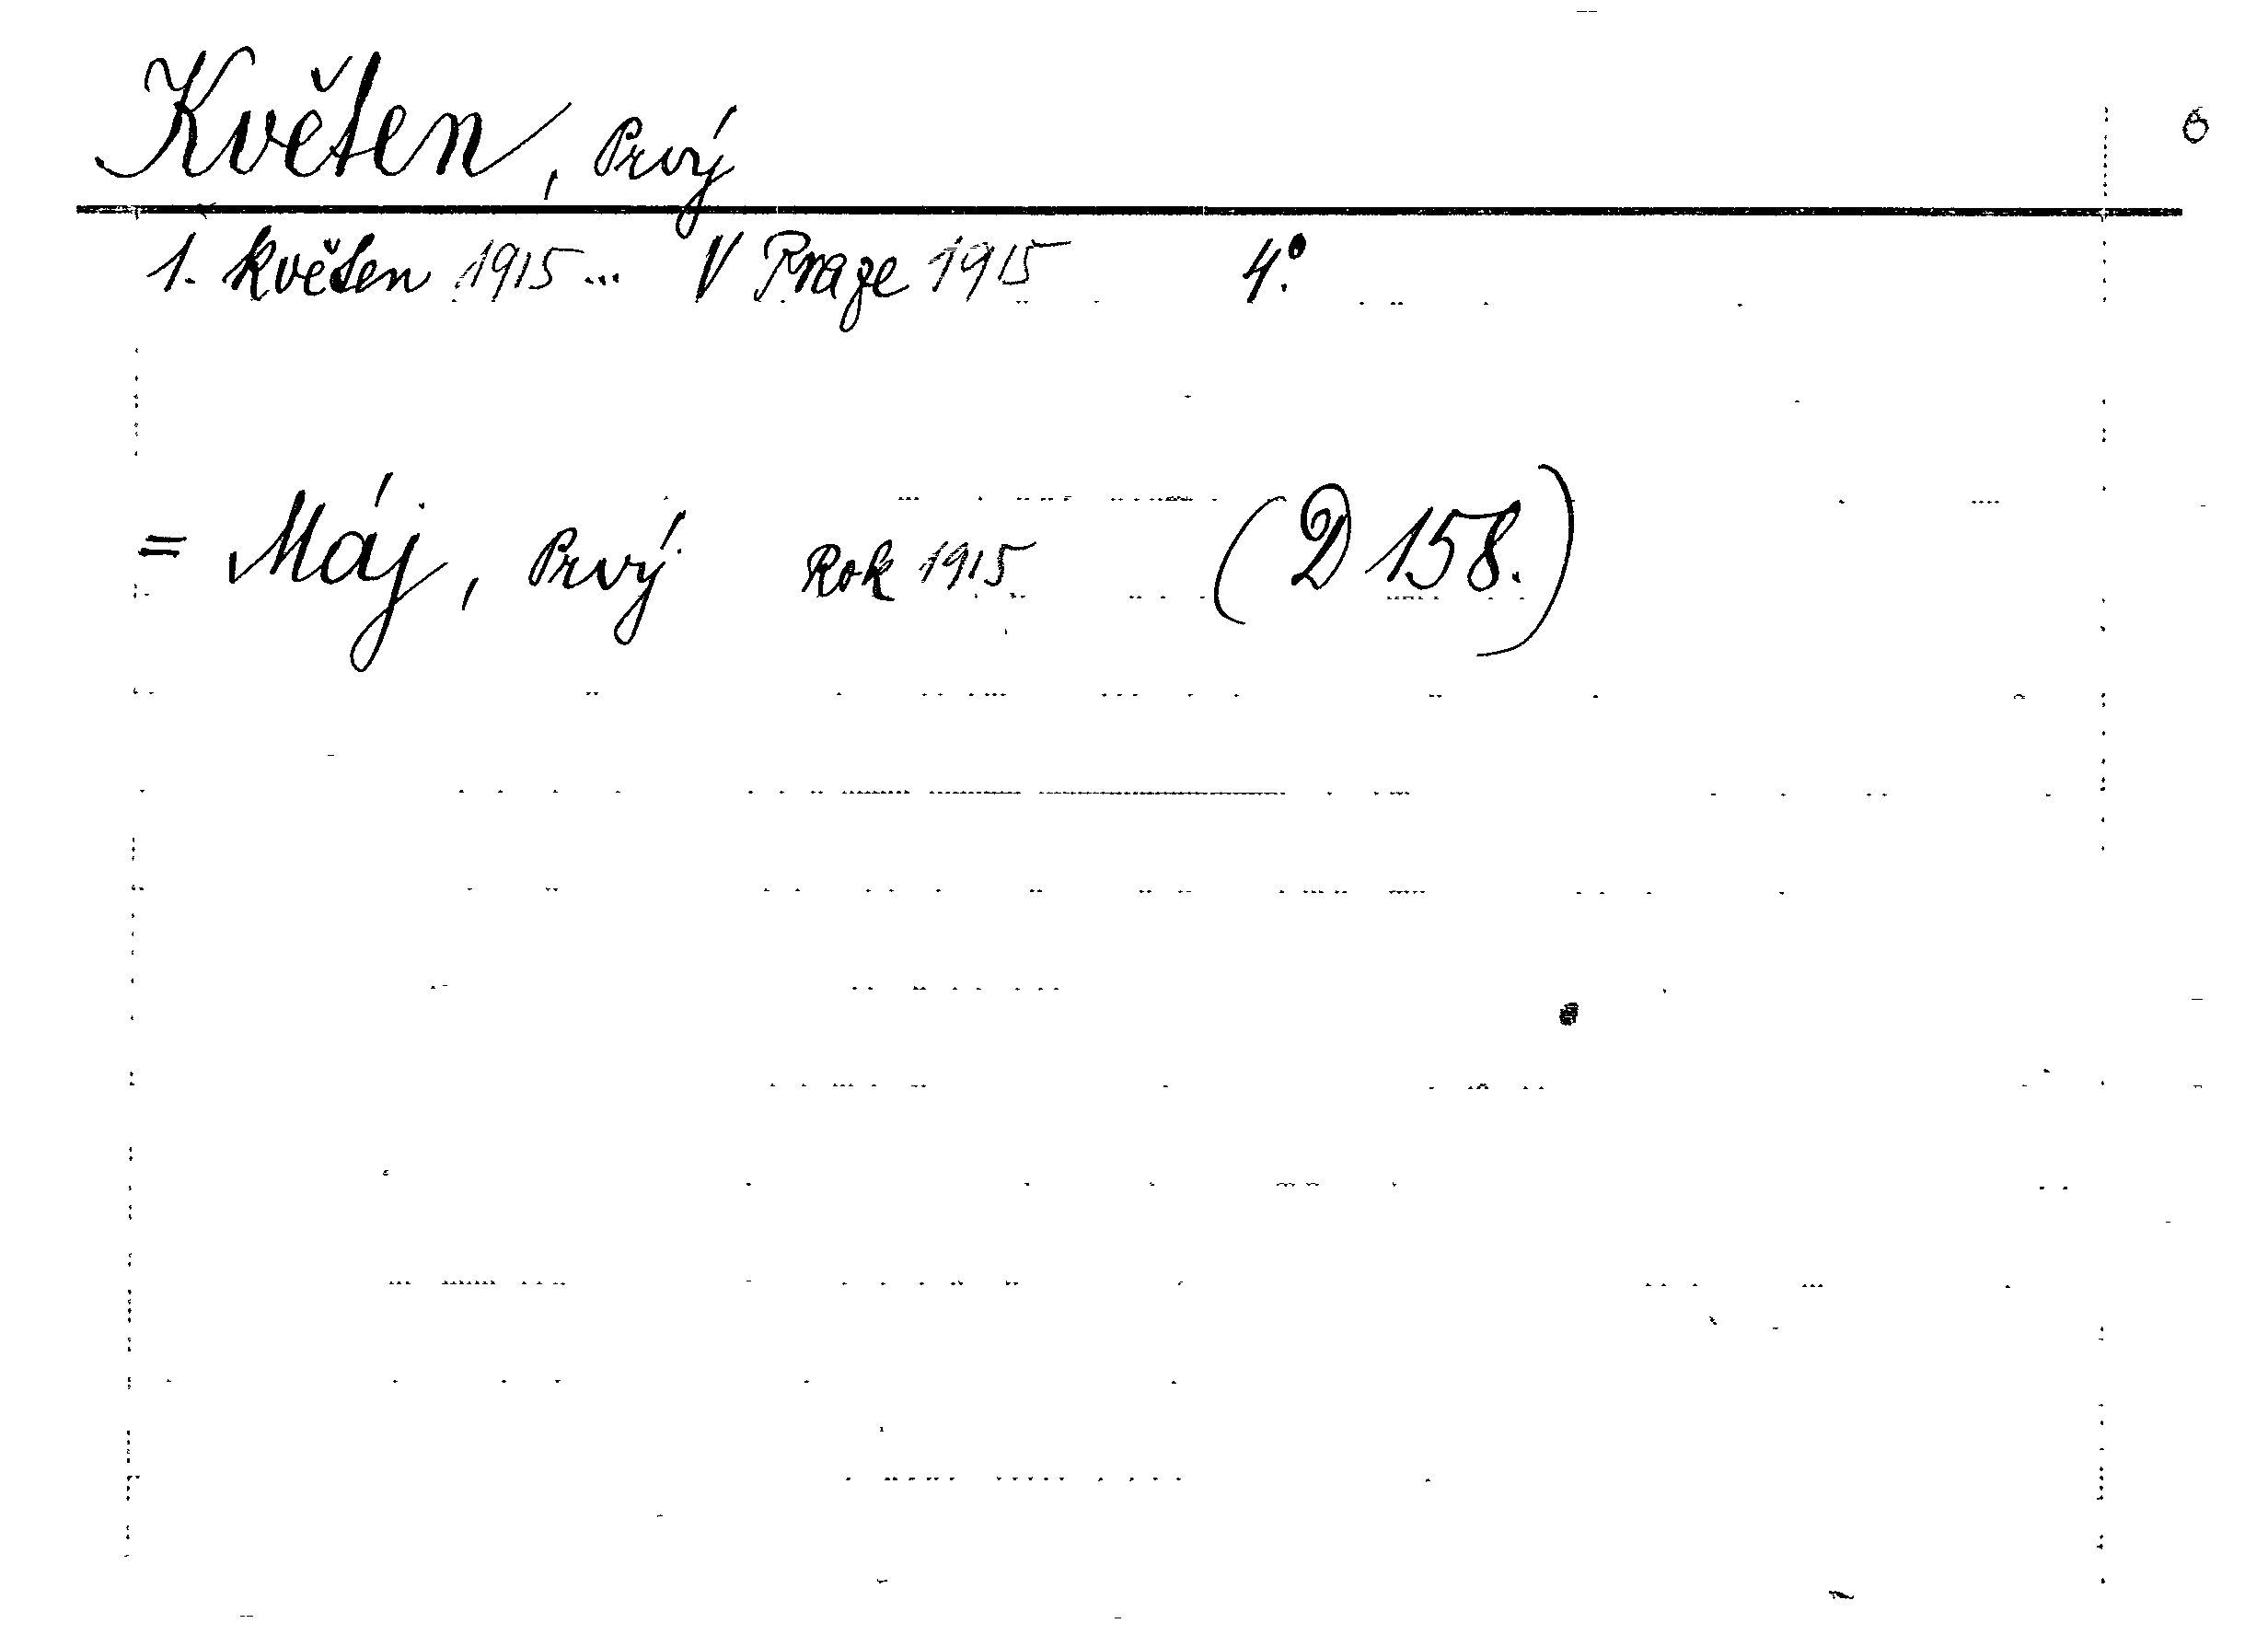 Květen, Prvý
1. květen 1915... V Praze 1915 4º.
= Máj, Prvý Rok 1915 (D 158.)